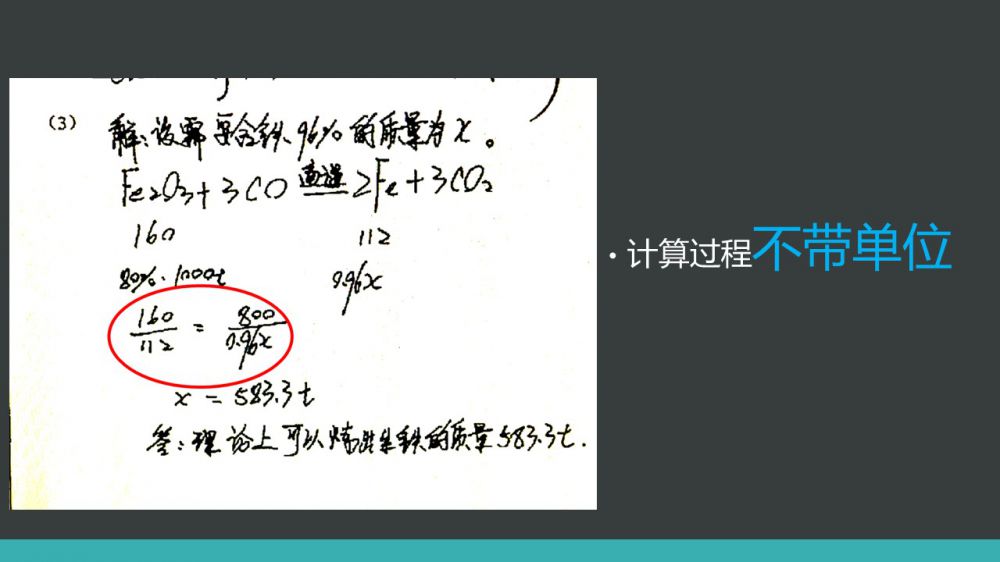 (3) 解:设需要含铁96%的质量为x。
Fe2O3+3CO 高温 2Fe+3CO2
160 112
80%·1000t 0.96x
160/112 = 800/0.96x
x = 583.3t
答:理论上可以炼出生铁的质量583.3t.
• 计算过程不带单位